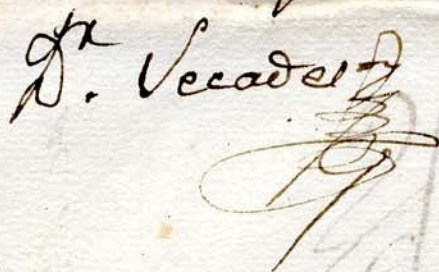 Dr. Vecades